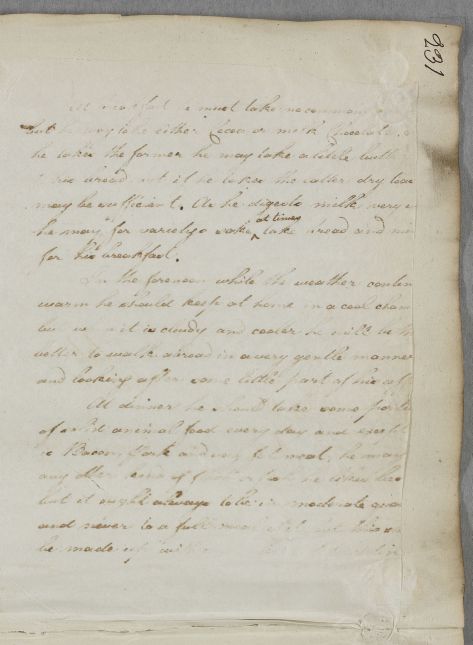 231
At breakfast he must take no common
but he may take either Cocoa or milk Chocolate
he takes the former he may take a little butter
bread but if he takes the latter dry
may be sufficient. As he digests milk very
he may for variety's sake at times take bread and
for his breakfast.
In the forenoon while the weather contin
warm he should keep at home in a cool cham
but when it is cloudy and cooler he will be
better to walk abroad in a very gentle manner
and looking after some little part of his
At dinner he should take some part
of solid animal food every day and except
Bacon, Pork and very fat meat, he may
any other kind of he likes
but it ought always to be in moderate quan
and never to a full meal
be made up with